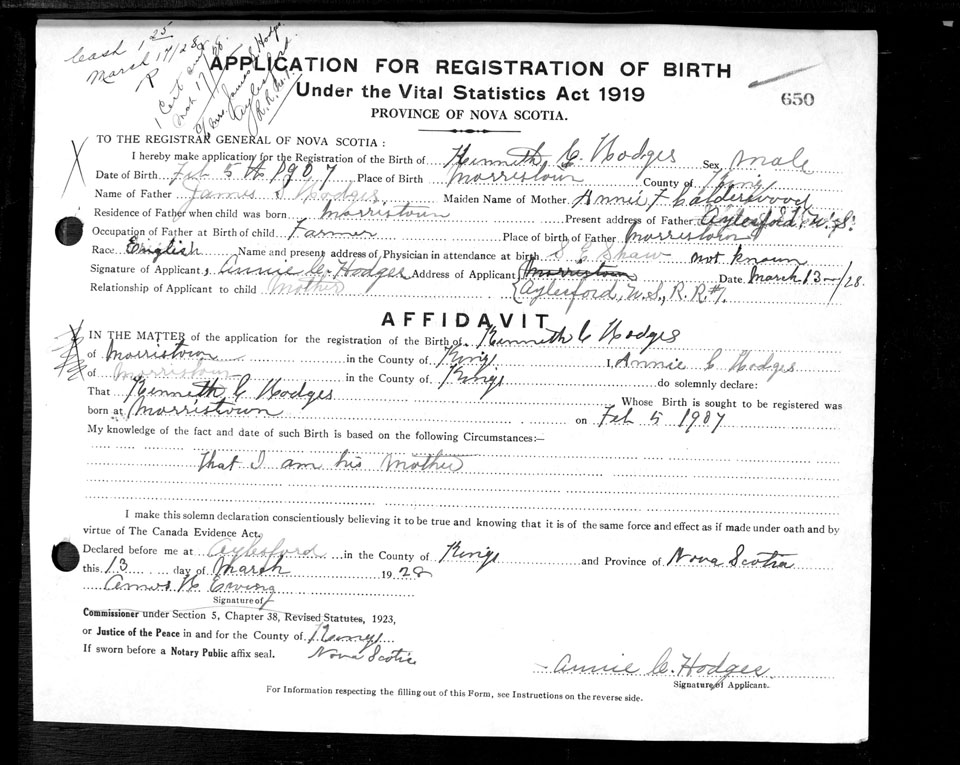 Cash 1 25
March 17/28
R
1 Cert and
Mch 17/28
Mrs. James S. Hodges
Aylesford
R.R. No. 1
APPLICATION FOR REGISTRATION OF BIRTH
Under the Vital Statistics Act 1919
650
PROVINCE OF NOVA SCOTIA.
TO THE REGISTRAR GENERAL OF NOVA SCOTIA :
I hereby make application for the Registration of the Birth of Kenneth C. Hodges Sex male
Date of Birth Feb 5th 1907 Place of Birth Morristown County of Kings
Name of Father James S Hodges Maiden Name of Mother Annie F Calderwood
Residence of Father when child was born Morristown Present address of Father Aylesford, N.S.
Occupation of Father at Birth of child Farmer Place of birth of Father Morristown
Race English Name and present address of Physician in attendance at birth S E Shaw not known
Signature of Applicant, Annie C. Hodges Address of Applicant Morristown Date March 13 /28.
Relationship of Applicant to child Mother Aylesford, N.S., R.R. #1.
AFFIDAVIT
IN THE MATTER of the application for the registration of the Birth of Kenneth C Hodges
of Morristown in the County of Kings I, Annie C Hodges
of Morristown in the County of Kings do solemnly declare:
That Kenneth C Hodges Whose Birth is sought to be registered was
born at Morristown on Feb 5 1907
My knowledge of the fact and date of such Birth is based on the following Circumstances:—
That I am his Mother
I make this solemn declaration conscientiously believing it to be true and knowing that it is of the same force and effect as if made under oath and by
virtue of The Canada Evidence Act.
Declared before me at Aylesford in the County of Kings and Province of Nova Scotia
this 13 day of March 1928
Signature of
Commissioner under Section 5, Chapter 38, Revised Statutes, 1923,
or Justice of the Peace in and for the County of Kings
If sworn before a Notary Public affix seal. Nova Scotia
Annie C. Hodges
Signature of Applicant.
For Information respecting the filling out of this Form, see Instructions on the reverse side.